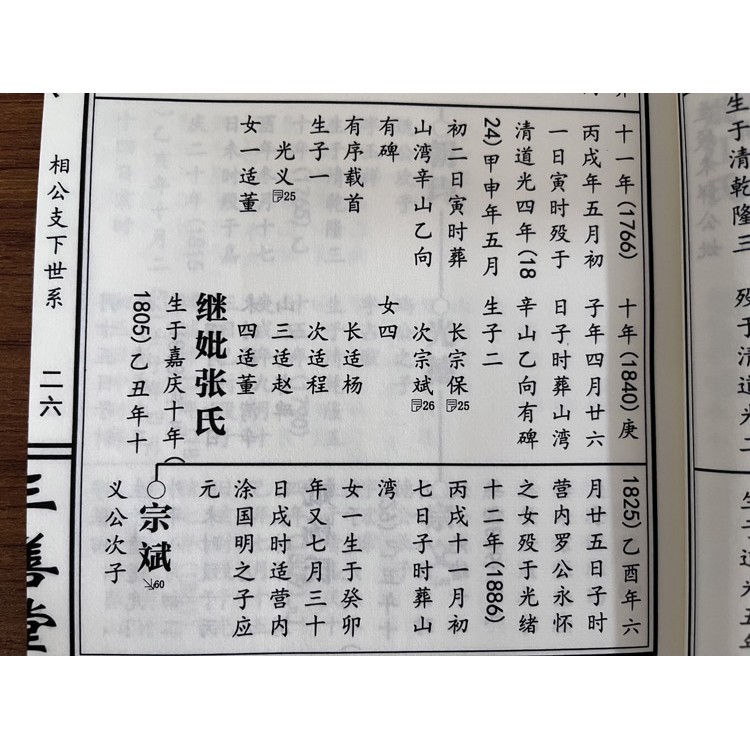 十一年(1766)
丙戌年五月初
一日寅时殁于
清道光四年(18
24)甲申年五月
初二日寅时葬
山湾辛山乙向
有碑
有序载首
生子一
光义25
女一适董
十年(1840)庚
子年四月廿六
日子时葬山湾
辛山乙向有碑
生子二
长宗保25
次宗斌26
女四
长适杨
次适程
三适赵
四适董
继妣张氏
生于嘉庆十年(
1805)乙丑年十
1825)乙酉年六
月廿五日子时
营内罗公永怀
之女殁于光绪
十二年(1886)
丙戌十一月初
七日子时葬山
湾
女一生于癸卯
年又七月三十
日戌时适营内
涂国明之子应
元
宗斌60
义公次子
相公支下世系
二六
三善堂
生于清乾隆三
殁于清道光二
生于道光五年